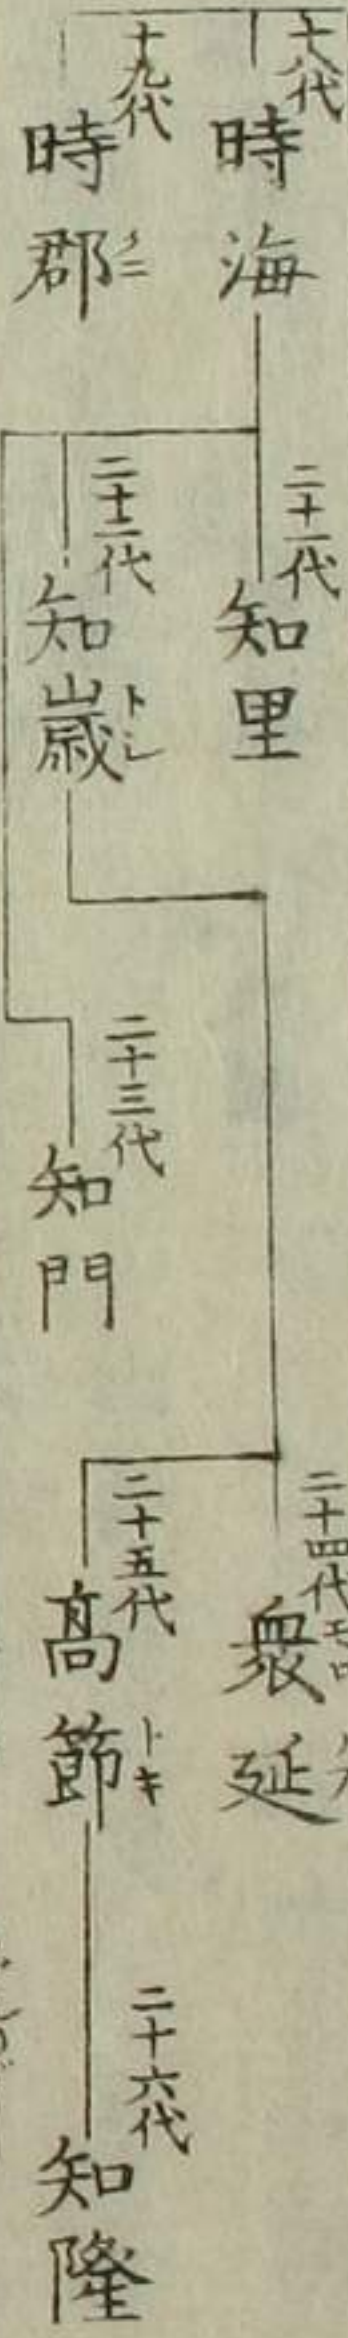 十八代
時海
十九代
時郡クニ
二十一代
知里
二十二代
知歳トシ
二十三代
知門
二十四代
衆延モロノブ
二十五代
高節トキ
二十六代
知隆